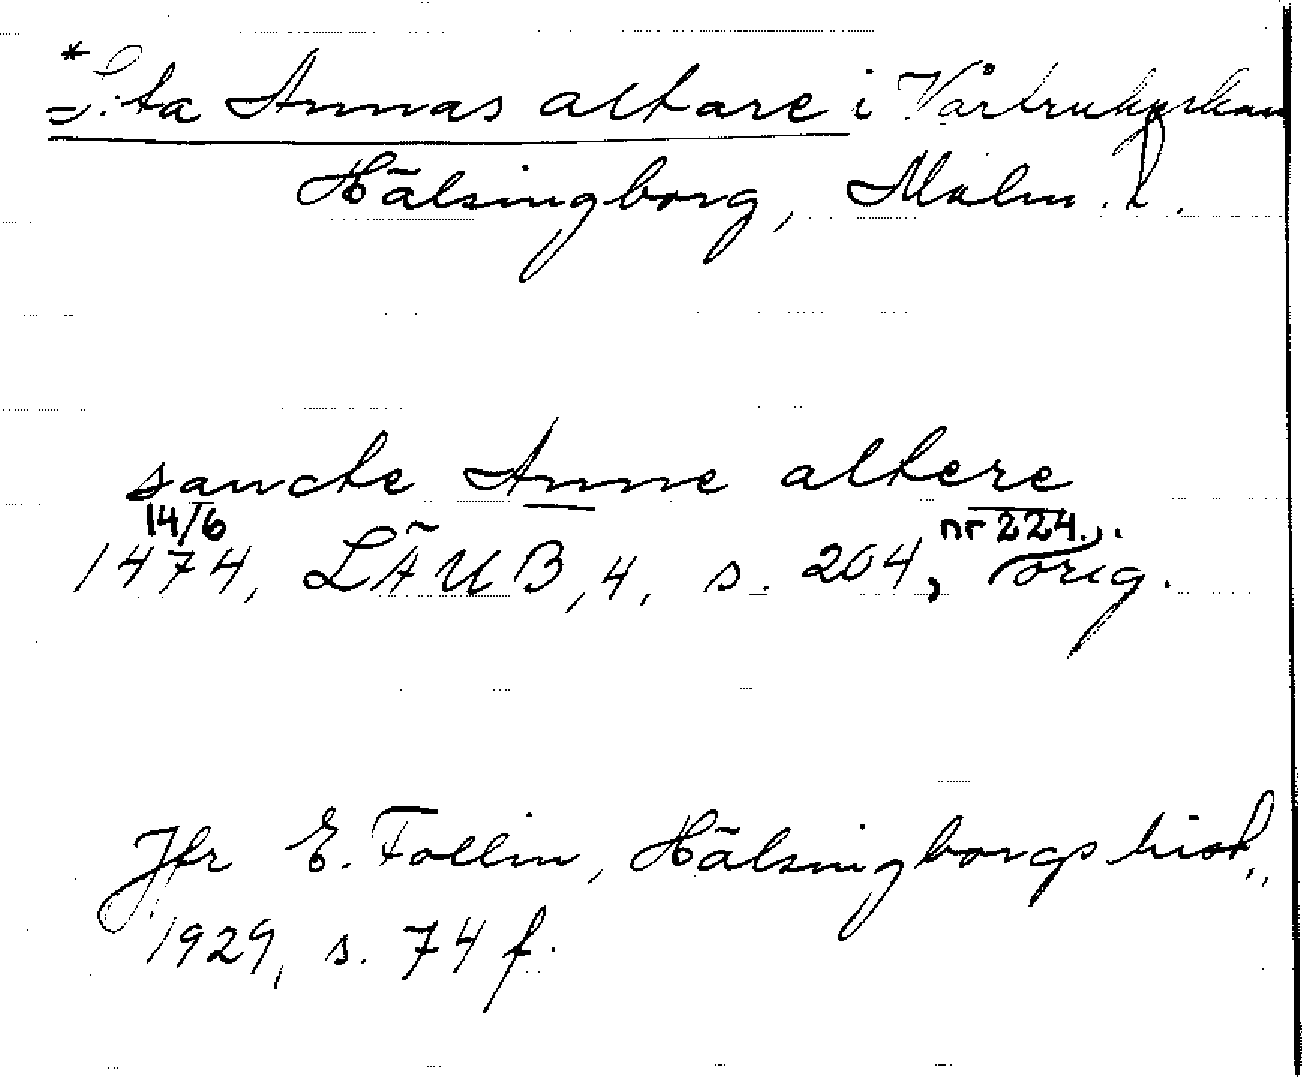 *S:ta Annas altare i Vårfrukyrkan
Hälsingborg, Malm. l.
sancte Anne altere
14/6 nr 224.
1474, LÄUB, 4, s. 204, orig.
Jfr E. Follin, Hälsingborgs hist.,
1929, s. 74 f.